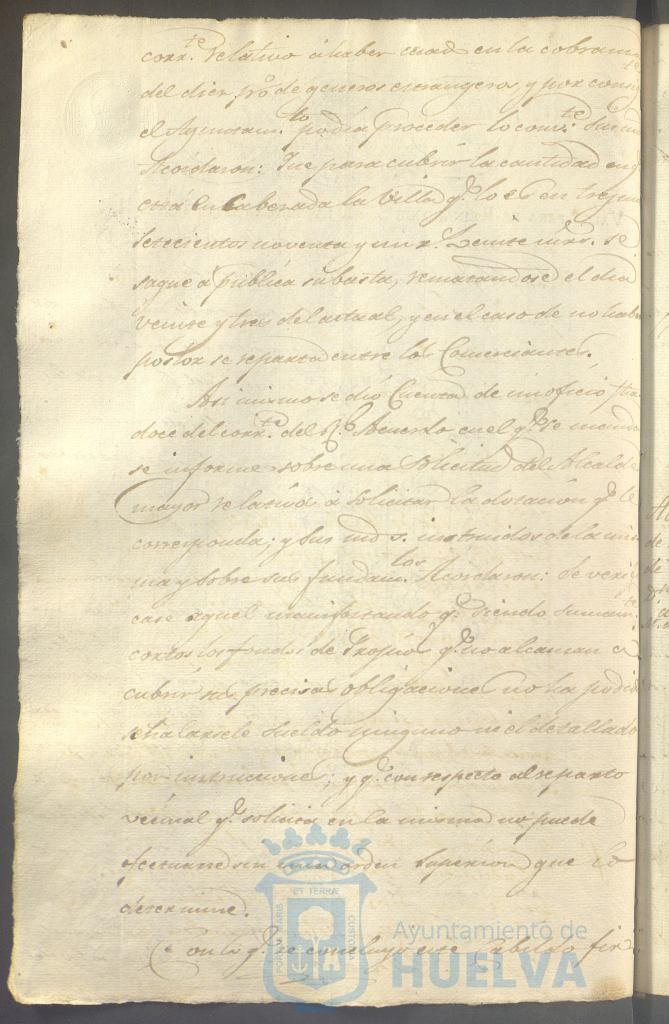 corr.te relativo á haber cesado en la cobranza
del diez p.r 0/0 de generos estrangeros, y por consig.te
el Ayuntam.to podia proceder lo com.te sus md
Acordaron: Que para cubrir la cantidad en q.
está encabezada la Villa q.e lo es en
setecientos noventa y un r.s veinte mrs. se
saque á pública subasta, rematandose el dia
veinte y tres del actual, y en el caso de no haber
postor se reparta entre los Comerciantes.
Asi mismo se dió Cuenta de un oficio fha
doce del corr.te del R.l Acuerdo en el q.e se manda
se informe sobre una Solicitud del Alcalde
mayor relativa á solicitar la dotacion q.e le
corresponda; y sus md.s instruidos de la mis
ma y sobre sus fundam.tos Acordaron: Se verifi
case aquel manifestando q.e siendo sumam.te
cortos los fondos de Propios q.e no alcanzan á
cubrir sus precisas obligaciones no ha podido
señalarsele sueldo ninguno ni el detallado
por instrucciones; y q.e con respecto al reparto
vecinal q.e solicita en la misma no puede
efectuarse sin una orden Superior que lo
determine.
Con lo q.e se concluyó este Cabildo fir
ET TERRÆ
PORTUS MARIS
CUSTODIA
Ayuntamiento de
HUELVA